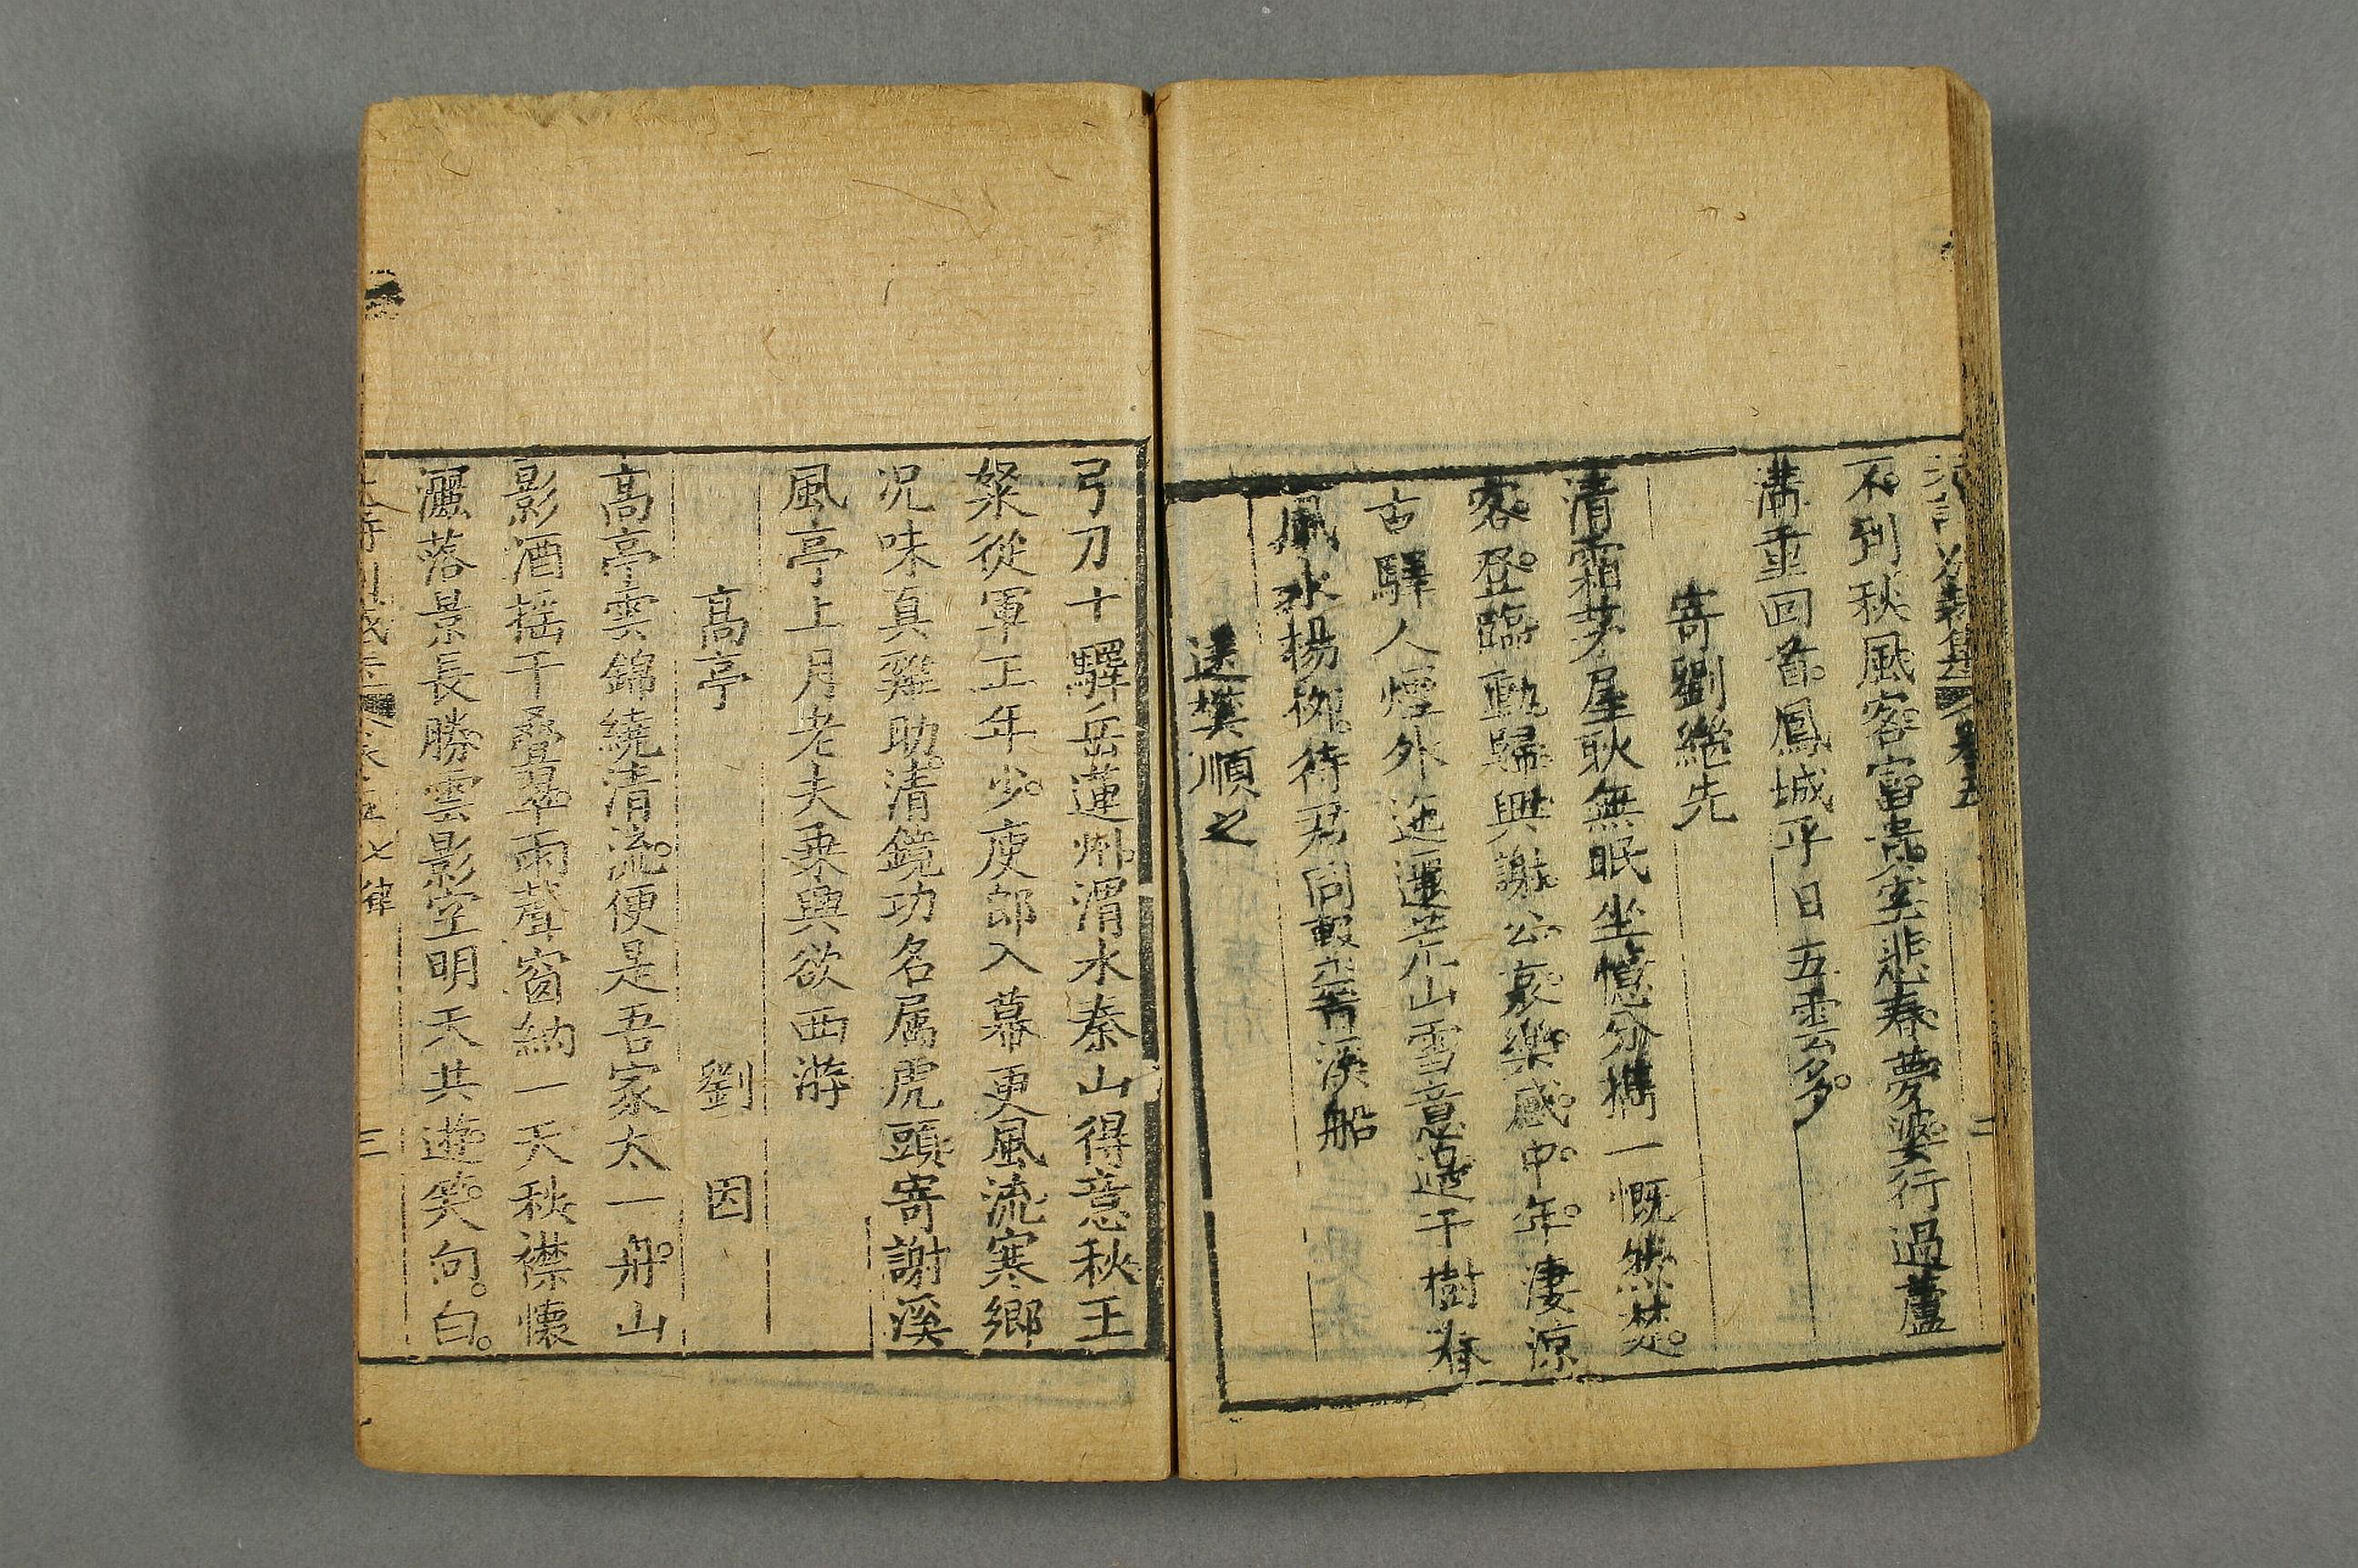 不到秋風客富貴空悲春夢婆行過蘆
溝重回首鳳城平日五雲多
寄劉繼先
清霜茅屋耿無眠坐憶分攜一慨然楚
客登臨動歸興謝公哀樂感中年凄涼
古驛人煙外迤邐荒山雪意邊千樹春
風水楊柳待君同繫溪船
送樊順之
弓刀十驛岳蓮州渭水秦山得意秋王
粲從軍正年少庾郎入幕更風流寒鄉
况味真雞肋清鏡功名属虎頭寄謝溪
風亭上月老夫乗興欲西游
高亭 劉因
高亭雲錦繞清流便是吾家太一舟山
影酒摇千疊翠雨聲窗納一天秋襟懷
灑落景長勝雲影空明天共遊笑句白
卷五 七律 三